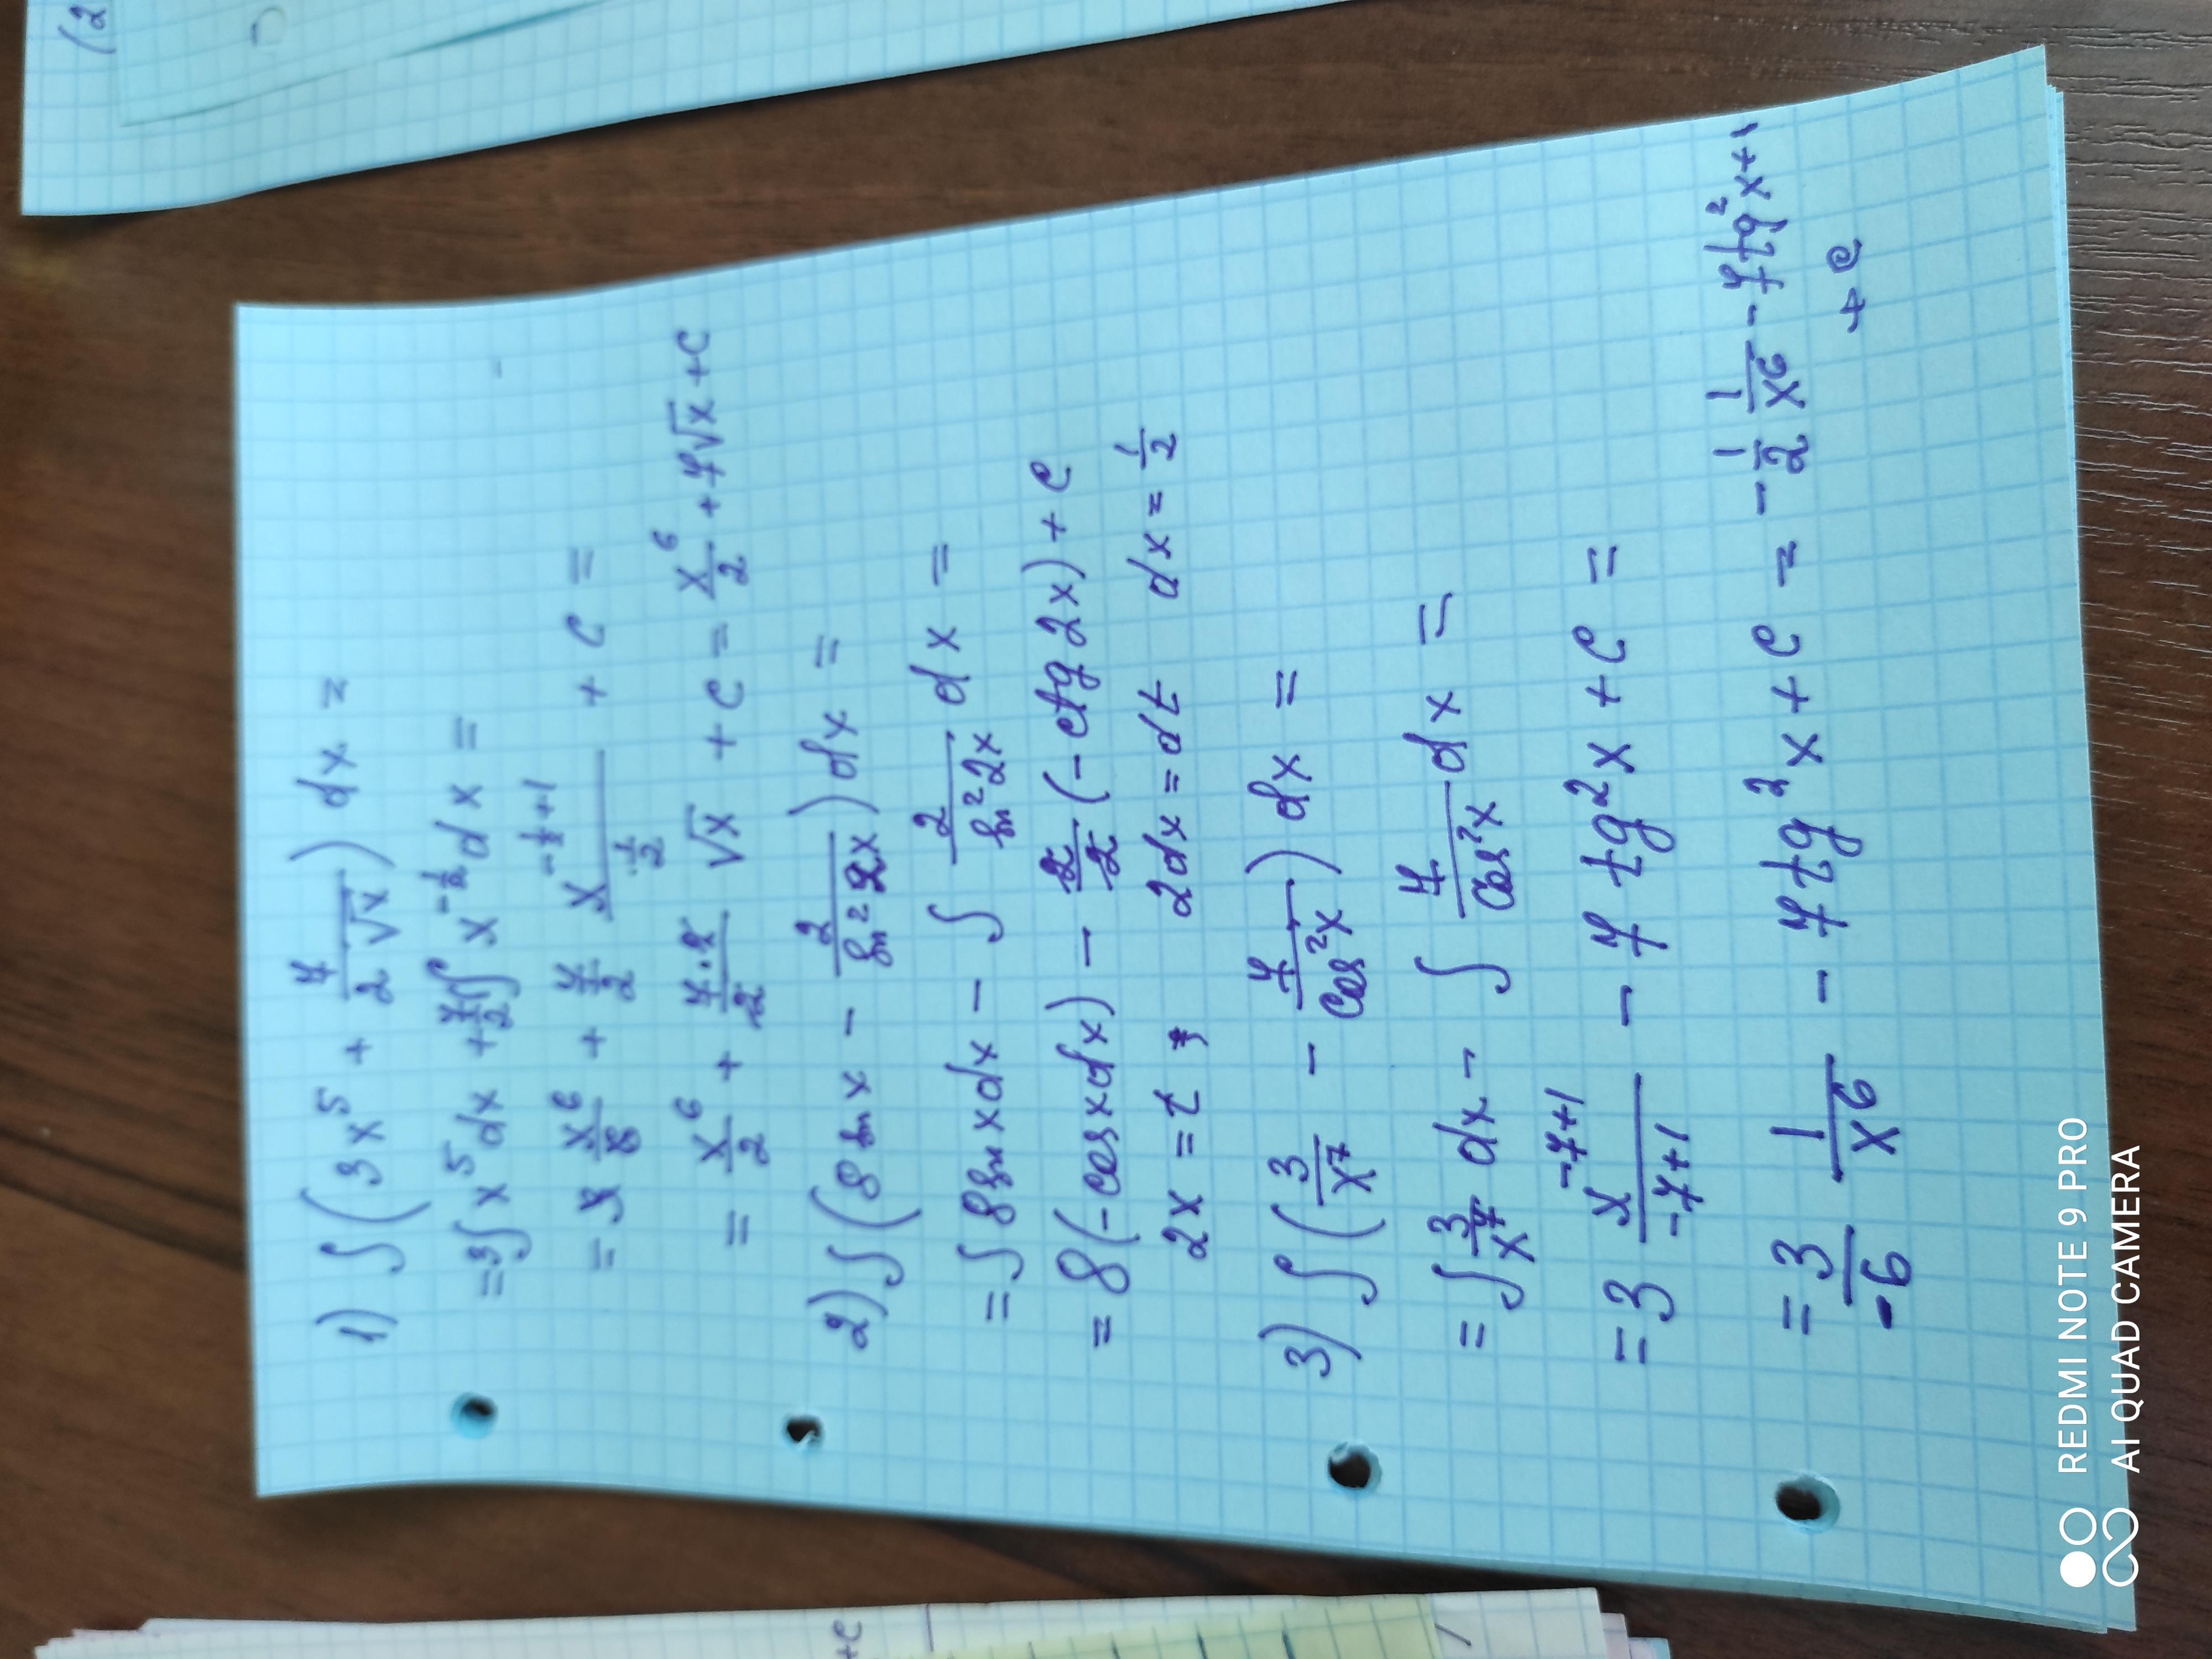 1) ∫(3x⁵ + 7/(2√x)) dx =
= 3∫x⁵dx + 7/2 ∫x^(-1/2) dx =
= 3 x⁶/6 + 7/2 x^(-1/2+1)/(1/2) + c =
= x⁶/2 + (7·2)/2 √x + c = x⁶/2 + 7√x + c
2) ∫(8 sin x - 2/(sin² 2x)) dx =
= ∫8 sin x dx - ∫ 2/(sin² 2x) dx =
= 8(-cos x dx) - 2/2 (-ctg 2x) + c
2x = t ; 2dx = dt dx = 1/2
3) ∫(3/x⁷ - 7/(cos² x)) dx =
= ∫ 3/x⁷ dx - ∫ 7/(cos² x) dx =
= 3 x^(-7+1)/(-7+1) - 7 tg² x + c =
= 3/(-6) 1/x⁶ - 7 tg² x + c = - 1/2 1/x⁶ - 7 tg² x +
+ c
+c
(2
REDMI NOTE 9 PRO
AI QUAD CAMERA